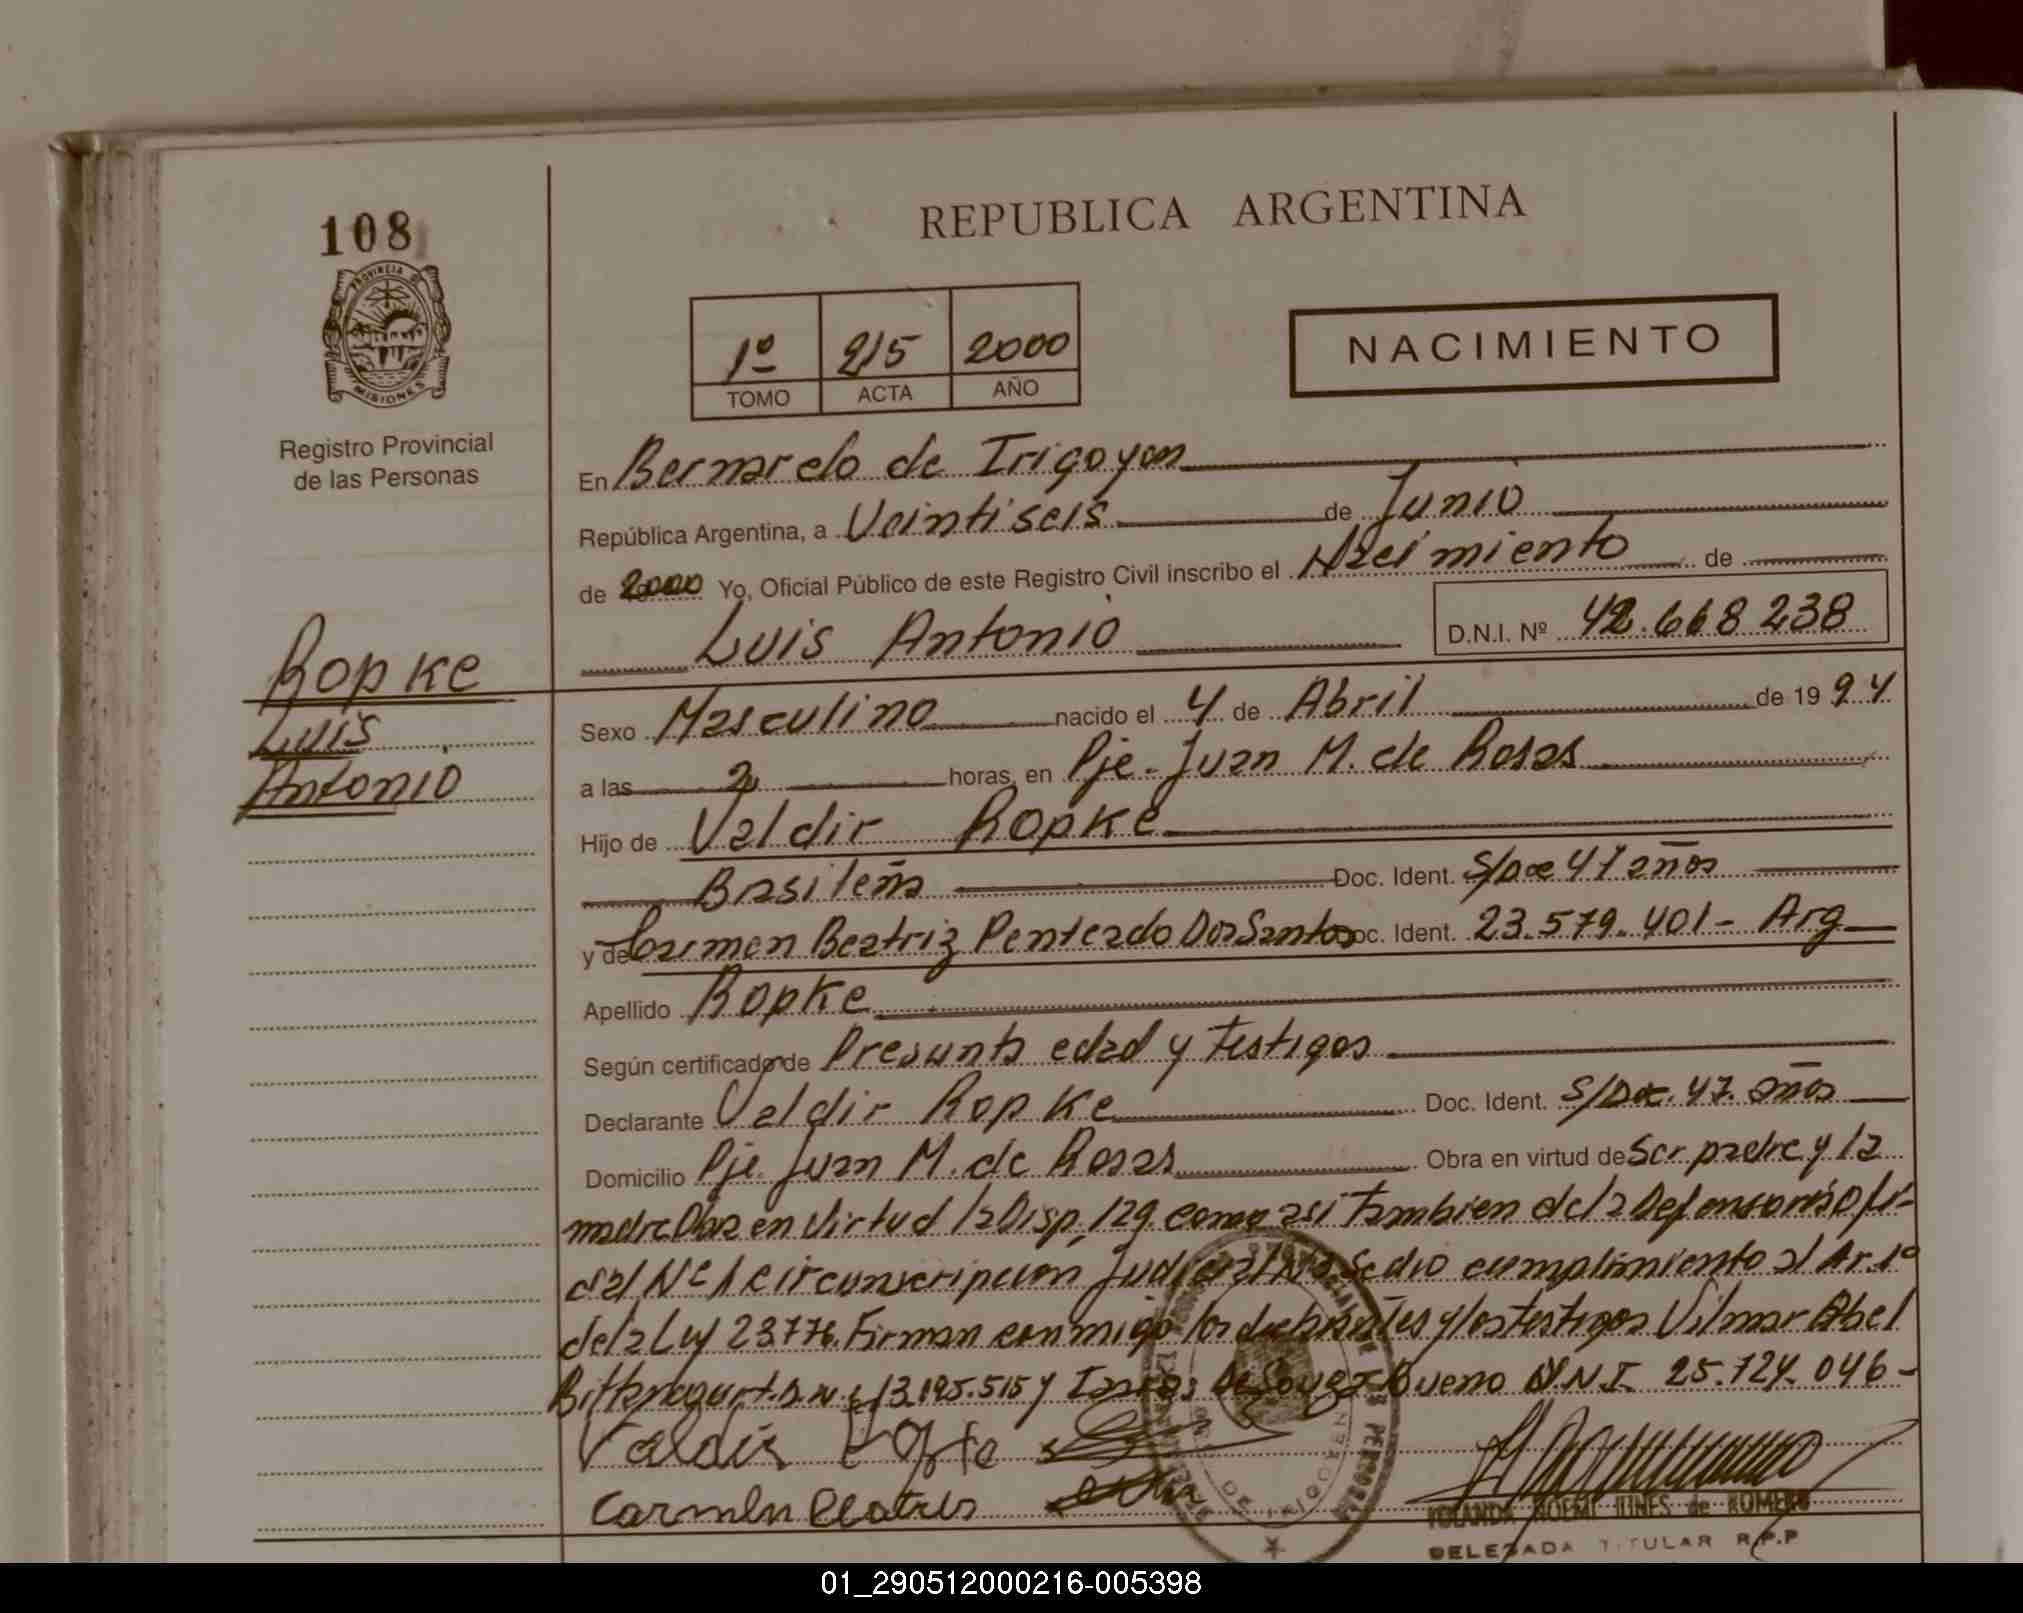 108
PROVINCIA DE
MISIONES
Registro Provincial
de las Personas
REPUBLICA ARGENTINA
1º 215 2000
TOMO ACTA AÑO
NACIMIENTO
En Bernardo de Irigoyen
República Argentina, a Veintiseis de Junio
de 2000 Yo, Oficial Público de este Registro Civil inscribo el Nacimiento de
Luis Antonio D.N.I. Nº 42.668.238
Ropke
Luis
Antonio
Sexo Masculino nacido el 4 de Abril de 19 94
a las 2 horas, en Pje. Juan M. de Rosas
Hijo de Valdir Ropke
Brasileña Doc. Ident. S/Doc 47 años
y de Carmen Beatriz Penteado Dos Santos Doc. Ident. 23.579.401 - Arg
Apellido Ropke
Según certificado de Presunta edad y testigos
Declarante Valdir Ropke Doc. Ident. S/Doc. 47. años
Domicilio Pje. Juan M. de Rosas Obra en virtud de Ser padre y la
madre Obra en virtud la Disp. 129. como asi tambien de la Defensoria ofi-
cial Nº 1 circunscripcion Judicial Nº Se dio cumplimiento al Ar. 1º
de la Ley 23776. Firman conmigo los y los testigos Vilmar Abel
Bittencourt D.N.I. 13.195.515 y De Souza Bueno D.N.I. 25.724.046 -
Valdir Ropke
Carmen Beatris
YOLANDA NOEMI NUNES de ROMERO
DELEGADA TITULAR R.P.P
DE IRIGOYEN
01_290512000216-005398